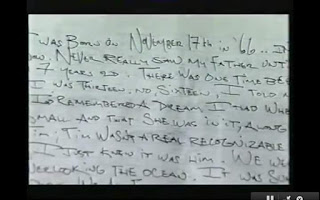 I WAS BORN ON NOVEMBER 17TH IN '66... IN
NEVER REALLY SAW MY FATHER UNT
7 YEARS OLD. THERE WAS ONE TIME BE
I WAS THIRTEEN, NO, SIXTEEN, I TOLD
I REMEMBERED A DREAM I HAD WHE
SMALL AND THAT SHE WAS IN IT, ALONG
IM, TIM WASN'T A REAL RECOGNIZABLE
I JUST KNEW IT WAS HIM. WE WE
VERLOOKING THE OCEAN. IT WAS SUN